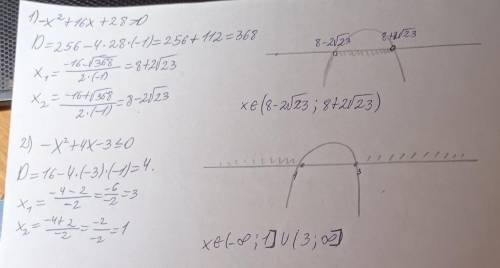 1) -x² + 16x + 28 > 0
D = 256 - 4 · 28 · (-1) = 256 + 112 = 368
x₁ = (-16 - √368) / (2 · (-1)) = 8 + 2√23
x₂ = (-16 + √368) / (2 · (-1)) = 8 - 2√23
8 - 2√23 8 + 2√23
x ∈ (8 - 2√23 ; 8 + 2√23)
2) -x² + 4x - 3 ≤ 0
D = 16 - 4 · (-3) · (-1) = 4.
x₁ = (-4 - 2) / -2 = -6 / -2 = 3
x₂ = (-4 + 2) / -2 = -2 / -2 = 1
1 3
x ∈ (-∞ ; 1] ∪ (3 ; ∞]